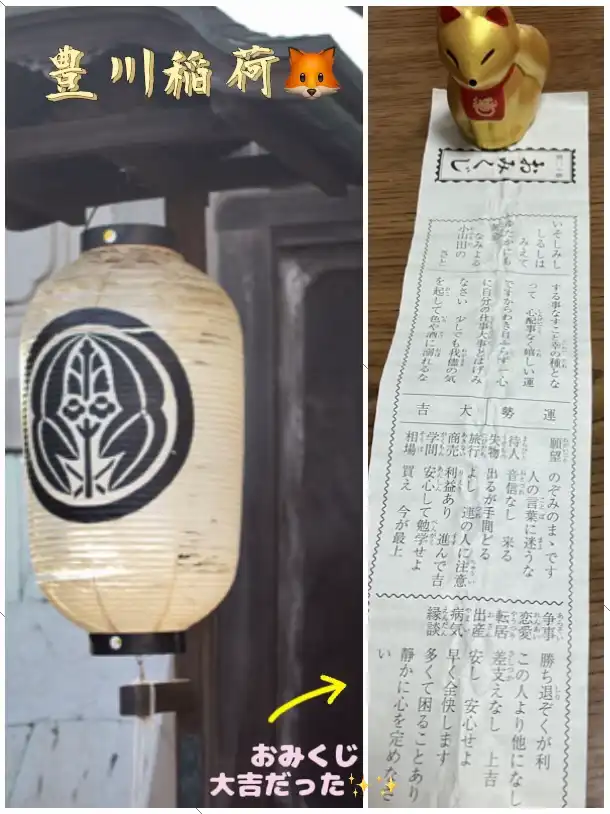 豊川稲荷🦊
おみくじ
大吉だった✨✨
おみくじ
いそしみし
しるしは
みえて
ゆたかにも
なみよる
小山田の
さと
する事なすこと幸の種とな
って 心配事なく嬉しい運
ですからわき目もふらず一心
に自分の仕事大事とはげみ
なさい 少しでも我儘の気
を起して色や酒に溺れるな
運勢 大吉
願望 のぞみのまゝです
人の言葉に迷うな
待人 音信なし 来る
失物 出るが手間どる
旅行 よし 連の人に注意
商売 利益あり 進んで吉
学問 安心して勉学せよ
相場 買え 今が最上
争事 勝ち退ぞくが利
恋愛 この人より他になし
転居 差支えなし 上吉
出産 安し 安心せよ
病気 早く全快します
縁談 多くて困ることあり
静かに心を定めなさ
い